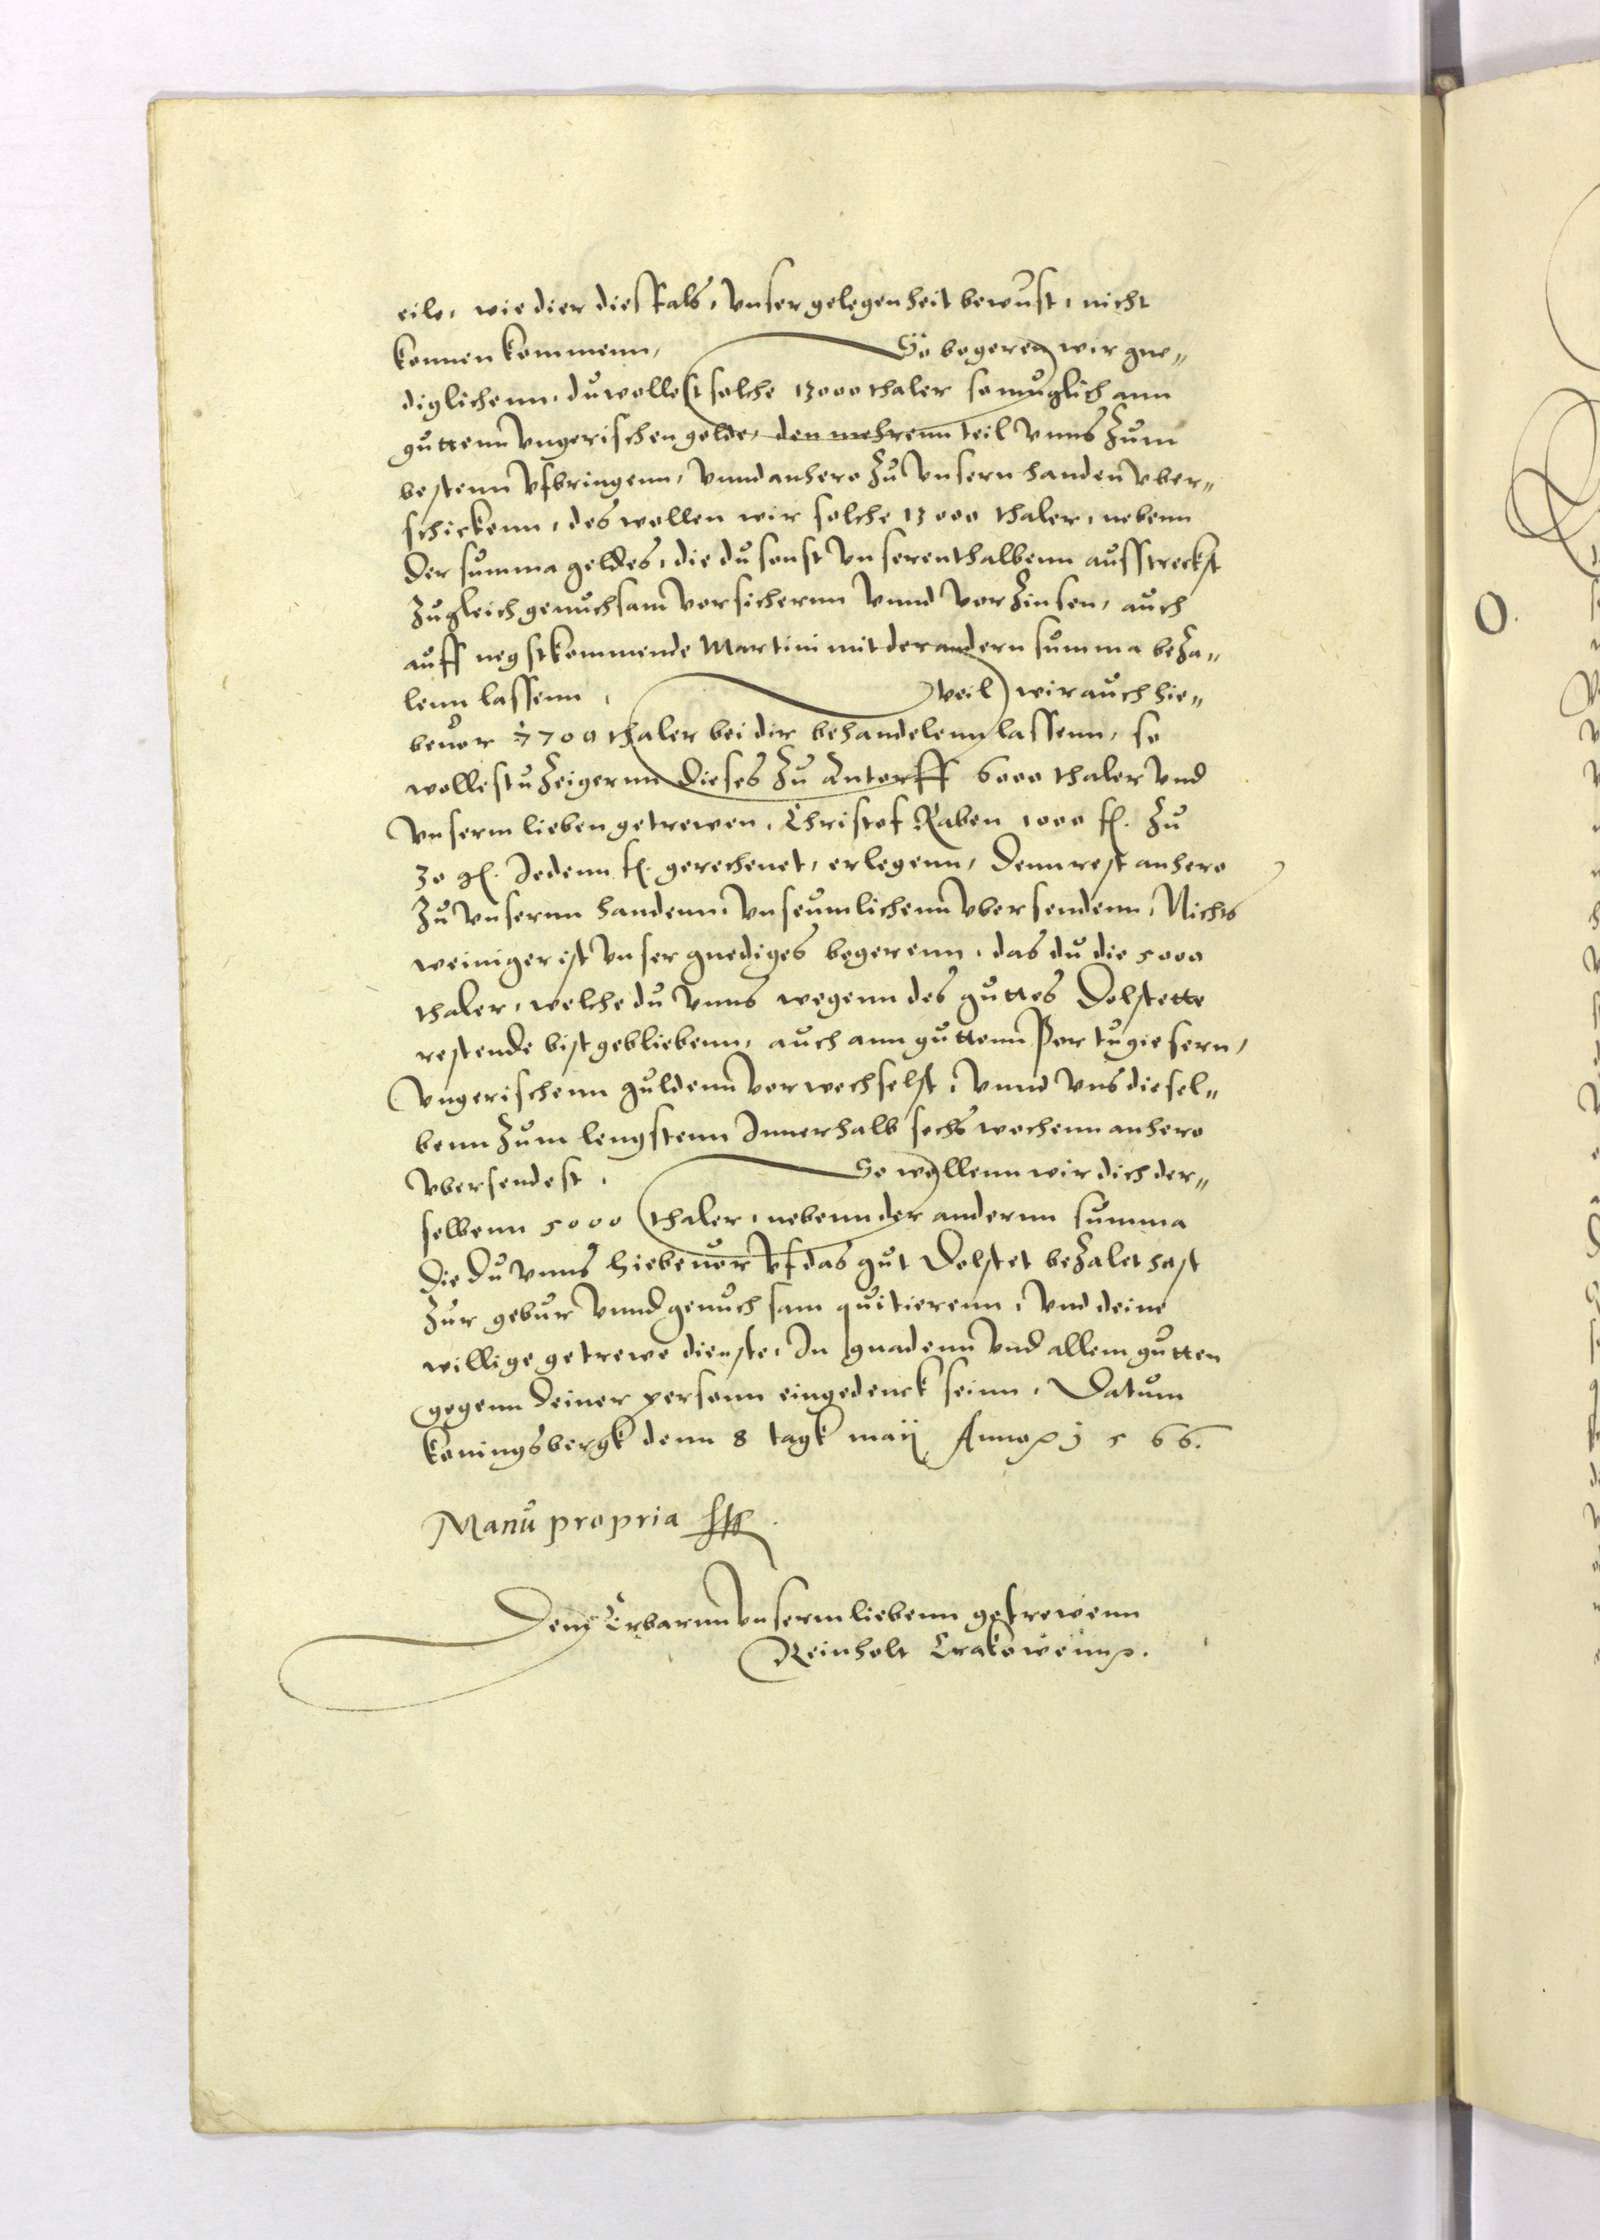 eile, wie dier diesfals, unser gelegenheit bewust, nicht
konnen kommenn, So begeren wir gne„
diglichenn, du wollest solche 13000 thaler so muglich ann
guttenn Ungerischen golde, den mehrenn teil unns zum
bestenn ufbringenn, unnd anhero zu unsern handen uber„
schickenn, des wollen wir solche 13000 thaler, nebenn
der summa geldes, die du sonst unserenthalbenn ausstreckst
zugleich genuchsam vorsichernn unnd vorzinsen, auch
auff negstkommende Martini mit der andern summa beza„
lenn lassenn, Weil wir auch hie„
bevor 7700 thaler bei dir behandelenn lassenn, so
wollestu zeigernn dieses zu Antorff 6000 thaler und
unserm lieben getrewen, Christof Raben 1000 fl. zu
30 gl. Jedenn fl. gerechenet, erlegenn, denn rest anhero
zu unsernn handenn, unseumlichenn ubersendenn, Nichts
weiniger ist unser gnediges begerenn, das du die 5000
thaler, welche du unns wegenn des guttes Dolstette
restende bist gebliebenn, auch ann guttenn Portugiesern,
Ungerischenn guldenn vorwechselst, unnd uns diesel„
benn zum lengstenn Innerhalb sechs wochenn anhero
ubersendest, So wollenn wir dich der„
selbenn 5000 thaler, nebenn der andernn summa
die du unns hiebevor uf das gut Dolstet bezalet hast
zur gebur unnd genuchsam quitierenn, und deine
willige getrewe dienste, In gnadenn und allem gutten
gegenn deiner personn eingedenck seinn, Datum
konningsbergk denn 8 tagk maij Anno 1566.
Manu propria
Dem Erbarnn unserm liebenn getrewenn
Reinholt Crakowenn.
O.